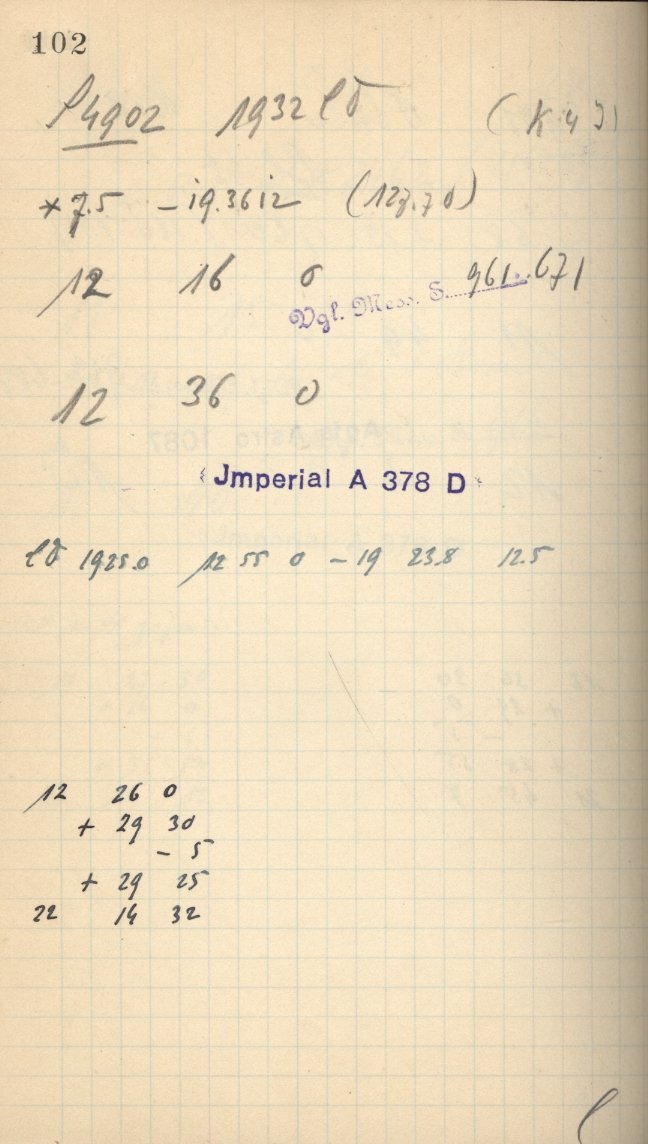 102
P4902 1932 (K 4
* 7.5 - 19.3612
12 16 0 961.671
Vgl. Mess. S.
12 36 0
Jmperial A 378 D
1925.0 12 55 0 - 19 23.8 12.5
12 26 0
+ 29 30
- 5
+ 29 25
22 14 32